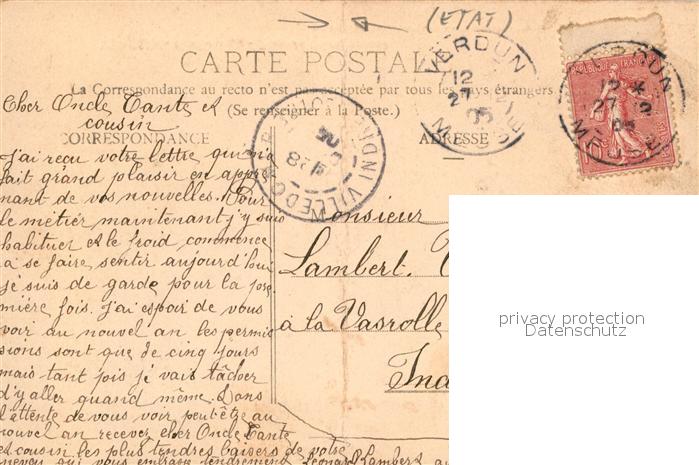 (ETAT)
CARTE POSTALE
La Correspondance au recto n'est pas acceptée par tous les pays étrangers
(Se renseigner à la Poste.)
CORRESPONDANCE
ADRESSE
VERDUN
12
27 12
05
MEUSE
VERDUN
12
27 12
05
MEUSE
Cher Oncle Tante et
cousin
J'ai reçu votre lettre qui m'a
fait grand plaisir en appre
nant de vos nouvelles. Pour
le métier maintenant j'y suis
habituer et le froid commence
a se faire sentir aujourd'hui
je suis de garde pour la pre
mière fois. J'ai espoir de vous
voir au nouvel an les permis
sions sont que de cinq jours
mais tant pis je vais tâcher
d'y aller quand même. Dans
l'attente de vous voir peut être au
nouvel an recevez cher Oncle Tante
et cousin les plus tendres baisers de votre
neveu qui vous embrasse tendrement Léonard Lambert au
Monsieur
Lambert.
à la Vasrolle
Ind
privacy protection
Datenschutz